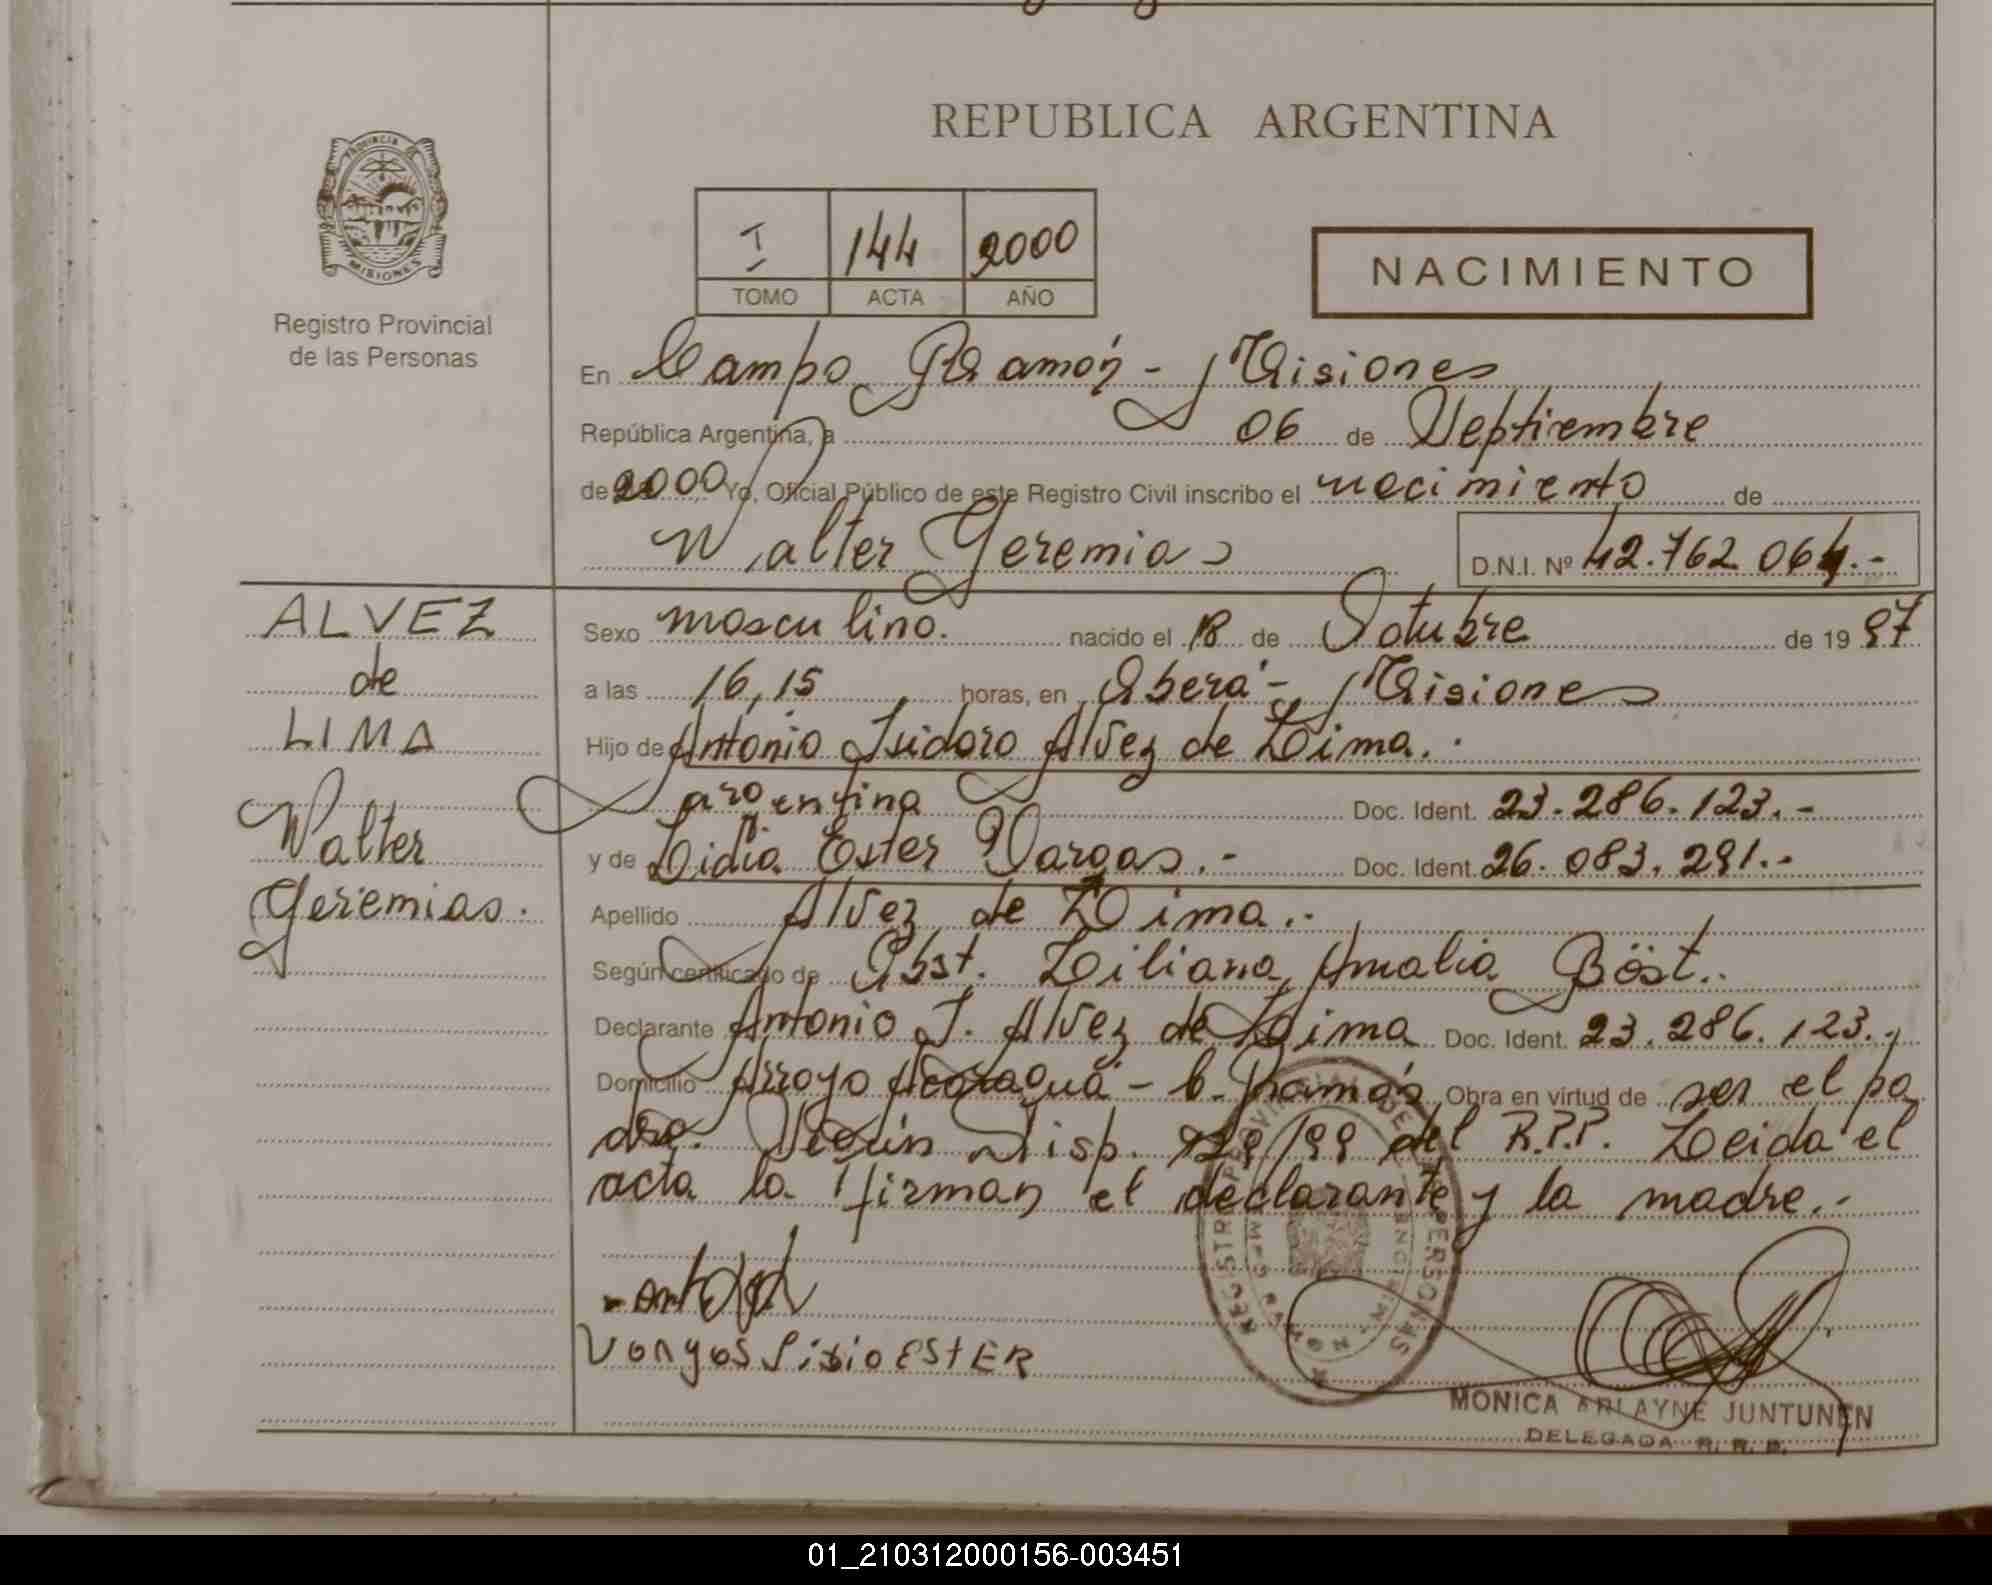 REPUBLICA ARGENTINA
PROVINCIA DE
MISIONES
Registro Provincial
de las Personas
I 144 2000
TOMO ACTA AÑO
NACIMIENTO
En Campo Ramón - Misiones
República Argentina, a 06 de Septiembre
de 2000 Yo, Oficial Público de este Registro Civil inscribo el nacimiento de
Walter Geremias D.N.I. Nº 42.762.064.-
ALVEZ
de
LIMA
Walter
Geremias.
Sexo masculino. nacido el 18 de Octubre de 19 97
a las 16,15 horas, en Oberá - Misiones
Hijo de Antonio Isidoro Alvez de Lima.-
argentina Doc. Ident. 23.286.123.-
y de Lidia Ester Vargas.- Doc. Ident. 26.083.291.-
Apellido Alvez de Lima.-
Según certificado de Obst. Liliana Amalia Böst.
Declarante Antonio I. Alvez de Lima Doc. Ident. 23.286.123.-
Domicilio Arroyo Acaraguá - C. Ramón Obra en virtud de ser el pa
dre. Según Disp. 929/99 del R.P.P. Leida el
acta la firman el declarante y la madre.-
VargasLidiaESTER
MONICA ARLAYNE JUNTUNEN
DELEGADA R. R. P.
01_210312000156-003451